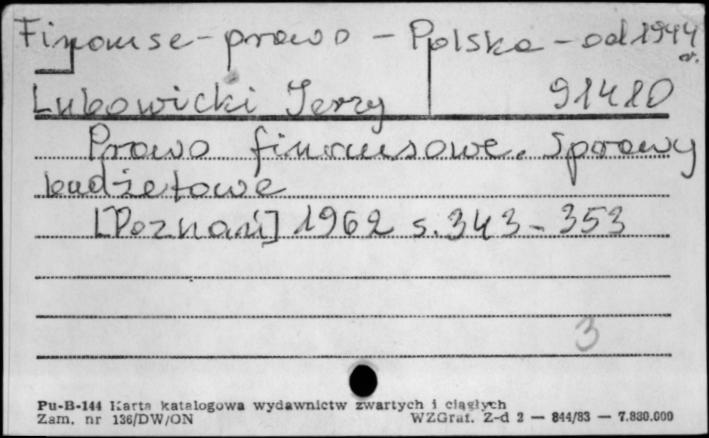 Finanse - prawo - Polska - od 1944 r.
Lubowicki Jerzy 91410
Prawo finansowe. Sprawy
budżetowe
[Poznań] 1962 s. 343 - 353
3
Pu-B-144 Karta katalogowa wydawnictw zwartych i ciągłych
Zam. nr 136/DW/ON WZGraf. Z-d 2 — 844/83 — 7.830.000